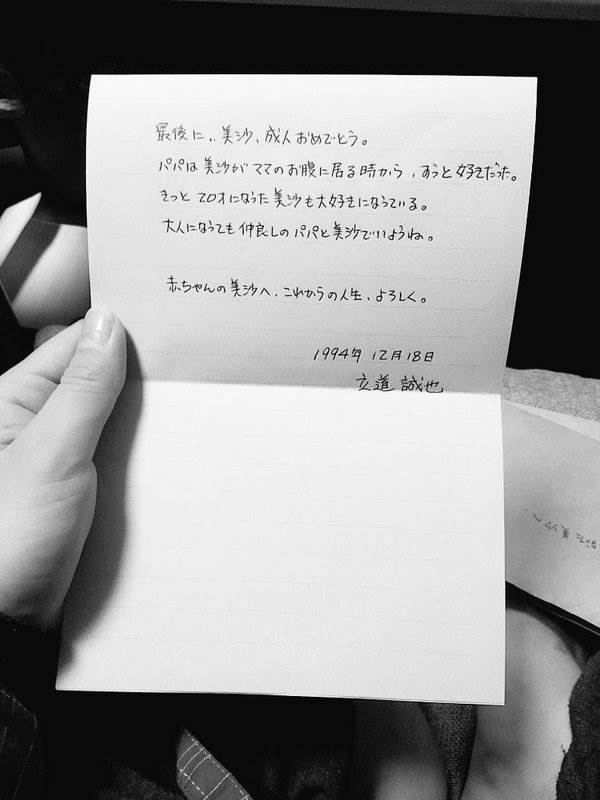 最後に、美沙、成人おめでとう。
パパは美沙がママのお腹に居る時から、ずっと好きだった。
きっと20才になった美沙も大好きになっている。
大人になっても仲良しのパパと美沙でいようね。
赤ちゃんの美沙へ、これからの人生、よろしく。
1994年12月18日
立道 誠也
美沙へ